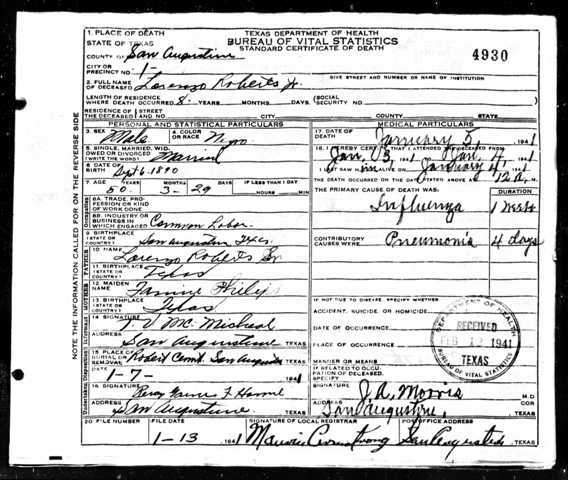 TEXAS DEPARTMENT OF HEALTH
BUREAU OF VITAL STATISTICS
STANDARD CERTIFICATE OF DEATH
4930
1. PLACE OF DEATH
STATE OF TEXAS
COUNTY OF San Augustine
CITY OR
PRECINCT NO. 1-
GIVE STREET AND NUMBER OR NAME OF INSTITUTION
2. FULL NAME
OF DECEASED Lorenzo Roberts Jr.
LENGTH OF RESIDENCE
WHERE DEATH OCCURRED YEARS MONTHS DAYS (SOCIAL SECURITY NO.
RESIDENCE OF STREET
THE DECEASED AND NO. CITY COUNTY STATE
PERSONAL AND STATISTICAL PARTICULARS
3. SEX Male
4. COLOR
OR RACE Negro
5. SINGLE, MARRIED, WID-
OWED OR DIVORCED
(WRITE THE WORD) Married
6. DATE OF
BIRTH Sept 6 1890
7. AGE YEARS MONTHS DAYS IF LESS THAN 1 DAY
50 - 3 - 29 HOURS MIN.
8A. TRADE, PRO-
FESSION OR KIND
OF WORK DONE
8B. INDUSTRY OR
BUSINESS IN
WHICH ENGAGED Common Labor
9. BIRTHPLACE
(STATE OR
COUNTRY) San Augustine Texas
FATHER
10. NAME Lorenzo Roberts Sr
11. BIRTHPLACE
(STATE OR
COUNTRY) Texas
MOTHER
12. MAIDEN
NAME
13. BIRTHPLACE
(STATE OR
COUNTRY) Texas
14. SIGNATURE T. V Mc. Micheal
ADDRESS San Augustine TEXAS
15. PLACE OF
BURIAL OR
REMOVAL Robert Cemt. San Augustine
1-7- 1941
16. SIGNATURE
ADDRESS San Augustine TEXAS
MEDICAL PARTICULARS
17. DATE OF
DEATH January 5, 1941
18. I HEREBY CERTIFY THAT I ATTENDED THE DECEASED FROM
Jan. 3, 1941 TO Jan. 4, 1941
I LAST SAW him ALIVE ON January 4 1941
THE DEATH OCCURRED ON THE DATE STATED ABOVE AT M.
THE PRIMARY CAUSE OF DEATH WAS: DURATION
Influenza 1 week
CONTRIBUTORY
CAUSES WERE Pneumonia 4 days
IF NOT DUE TO DISEASE, SPECIFY WHETHER
ACCIDENT, SUICIDE, OR HOMICIDE
DATE OF OCCURRENCE
PLACE OF OCCURRENCE
MANNER OR MEANS
IF RELATED TO OCCUPA-
TION OF DECEASED,
SPECIFY
SIGNATURE J. A. Morris M.D.
COR
ADDRESS San Augustine, TEXAS
DEPARTMENT OF HEALTH
RECEIVED
FEB 12 1941
TEXAS
BUREAU OF VITAL STATISTICS
20 FILE NUMBER FILE DATE SIGNATURE OF LOCAL REGISTRAR POST OFFICE ADDRESS
1-13 1941 San Augustine TEXAS
NOTE THE INFORMATION CALLED FOR ON THE REVERSE SIDE